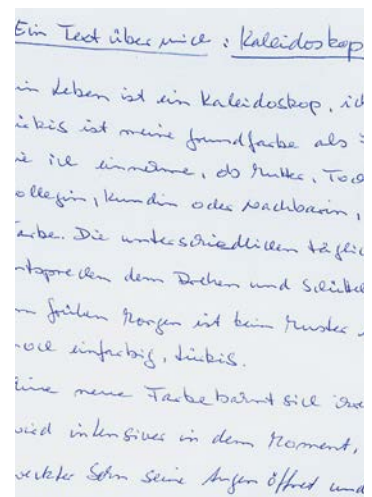 Ein Text über mich : Kaleidoskop
in Leben ist ein Kaleidoskop, ich
ürkis ist meine Grundfarbe als
ie ich einnehme, ob Mutter, Toc
ollegin, Kundin oder Nachbarin,
arbe. Die unterschiedlichen täglic
ntsprechen dem Drehen und Schüttel
m frühen Morgen ist kein Muster
noch einfarbig, türkis.
ine neue Farbe bahnt sich ihre
wird intensiver in dem Moment,
weckter Sohn seine Augen öffnet und